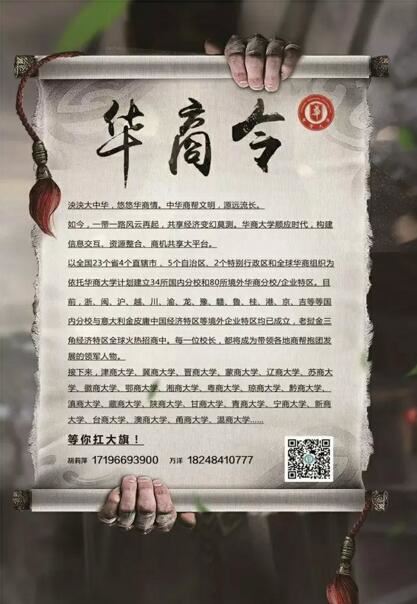 华商令
泱泱大中华，悠悠华商情。中华商帮文明，源远流长。
如今，一带一路风云再起，共享经济变幻莫测。华商大学顺应时代，构建
信息交互、资源整合、商机共享大平台。
以全国23个省4个直辖市，5个自治区、2个特别行政区和全球华商组织为
依托华商大学计划建立34所国内分校和80所境外华商分校/企业特区。目
前，浙、闽、沪、越、川、渝、龙、豫、赣、鲁、桂、港、京、吉等等国
内分校与意大利金皮唐中国经济特区等境外企业特区均已成立，老挝金三
角经济特区全球火热招商中。每一位校长，都将成为带领各地商帮抱团发
展的领军人物。
接下来，津商大学、冀商大学、晋商大学、蒙商大学、辽商大学、苏商大
学、徽商大学、鄂商大学、湘商大学、粤商大学、琼商大学、黔商大学、
滇商大学、藏商大学、陕商大学、甘商大学、青商大学、宁商大学、新商
大学、台商大学、澳商大学、甬商大学、温商大学......
等你扛大旗！
胡莉萍 17196693900 万洋 18248410777